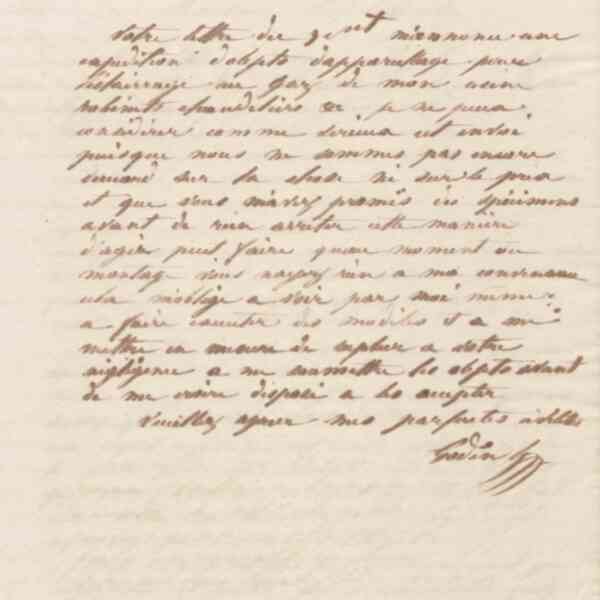 Votre lettre du 7 ct m'annonce une
expédition d'objets d'appareillage pour
l'éclairage au Gaz de mon usine
robinets chandeliers &c je ne peux
considérer comme sérieux cet envoi
puisque nous ne sommes pas encore
sur la chose ni sur le prix
et que vous m'avez promis des spécimens
avant de rien arrêter cette manière
d'agir peut faire qu'au moment du
montage vous n'ayez rien a ma convenance
cela m'oblige a voir par moi même
a faire executer des modèles et a me
mettre en mesure de supléer a votre
négligence a me soumettre les objets avant
de me croire disposé a les accepter
Veuillez agréer mes parfaites civilités
Godin